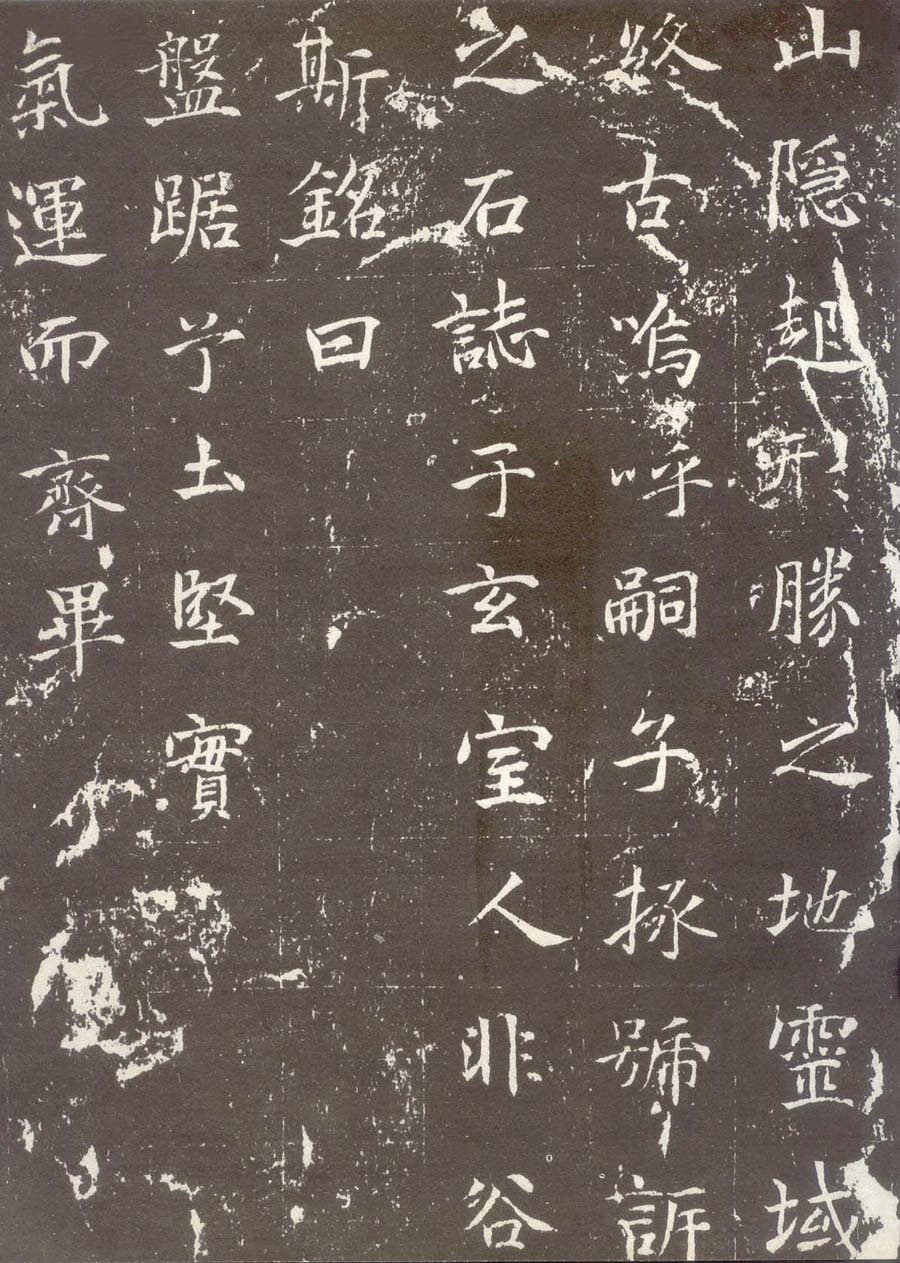 山隐起形勝之地靈域
終古嗚呼嗣子掾號訴
之石誌于玄室人非谷
斯銘曰
盤踞兮土堅實
氣運而齊畢